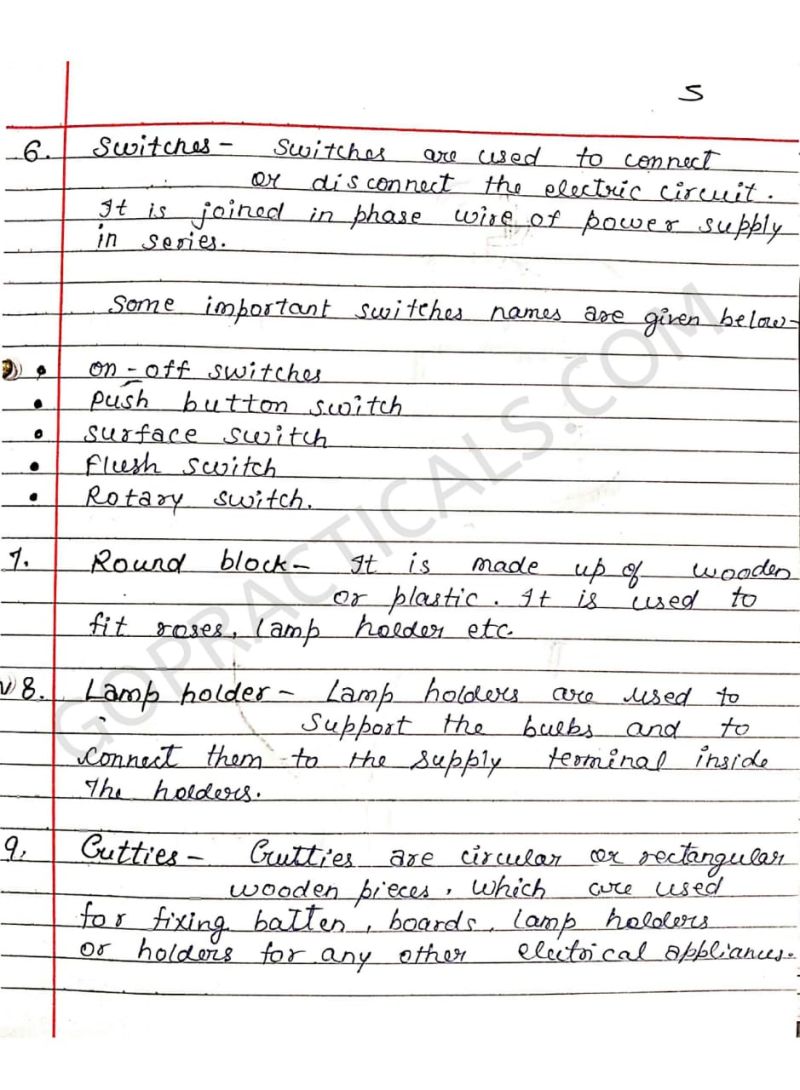 5
6. Switches - Switches are used to connect
or disconnect the electric circuit.
It is joined in phase wire of power supply
in series.
Some important switches names are given below-
• on-off switches
• Push button switch
• Surface switch
• Flush switch
• Rotary switch.
7. Round block - It is made up of wooden
or plastic. It is used to
fit roses, lamp holder etc.
8. Lamp holder - Lamp holders are used to
Support the bulbs and to
connect them to the supply terminal inside
the holders.
9. Gutties - Gutties are circular or rectangular
wooden pieces, which are used
for fixing batten, boards, lamp holders
or holders for any other electrical appliances.
GOPRACTICALS.COM